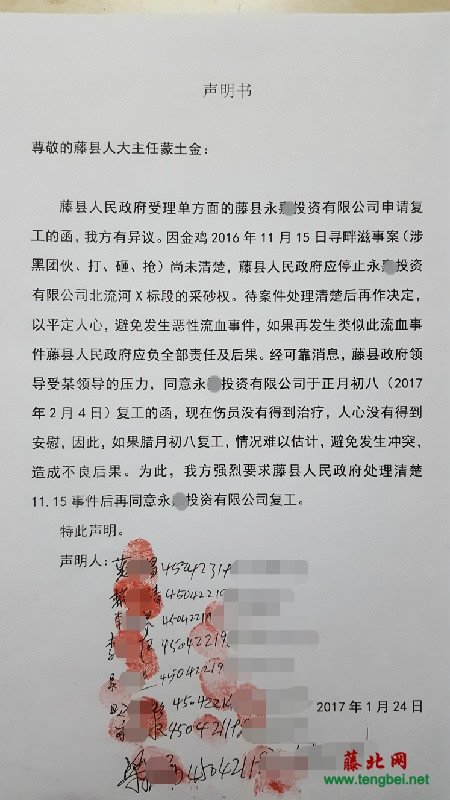 声明书
尊敬的藤县人大主任蒙土金：
藤县人民政府受理单方面的藤县永投资有限公司申请复
工的函，我方有异议。因金鸡2016年11月15日寻畔滋事案（涉
黑团伙、打、砸、抢）尚未清楚，藤县人民政府应停止永投资
有限公司北流河X标段的采砂权。待案件处理清楚后再作决定，
以平定人心，避免发生恶性流血事件，如果再发生类似此流血事
件藤县人民政府应负全部责任及后果。经可靠消息，藤县政府领
导受某领导的压力，同意永投资有限公司于正月初八（2017
年2月4日）复工的函，现在伤员没有得到治疗，人心没有得到
安慰，因此，如果腊月初八复工，情况难以估计，避免发生冲突、
造成不良后果。为此，我方强烈要求藤县人民政府处理清楚
11.15事件后再同意永投资有限公司复工。
特此声明。
声明人：
2017年1月24日
藤北网
www.tengbei.net